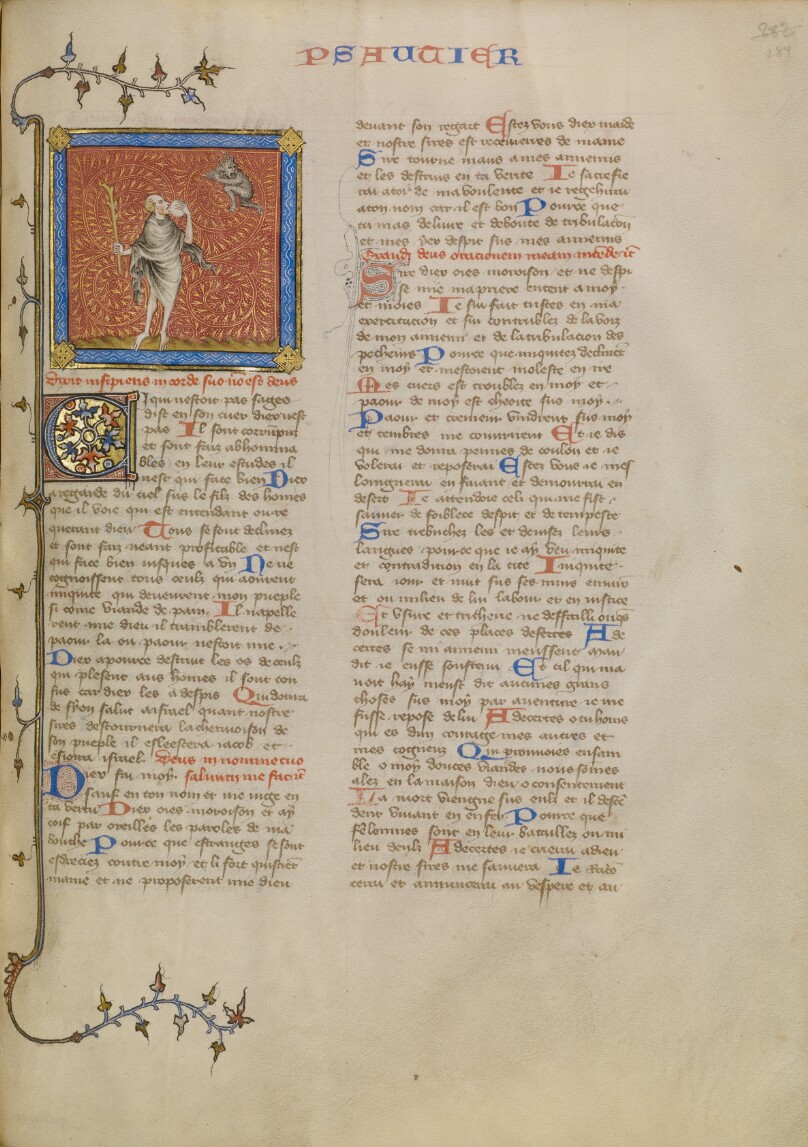 PSAUTIER
287
Dixit insipiens in corde suo nō est deus
Cil qui nestoit pas sages
dist en son cuer diex nest
pas Il sont corrumpuz
et sont faiz abhomina
bles en leur estudes il
nest qui face bien Diex
regarde du ciel sus le filz des homes
que il voie qui est entendant ou re
querant dieu Touz se sont declinez
et sont faiz neant profitable et nest
qui face bien iusques a vn Ne ne
cognoissent touz ceulz qui aourent
iniquite qui deueurent mon pueple
si come viande de pain Il napelle
rent mie dieu il tramblerent de
paour la ou paour nestoit mie
Diex apource destruit les os de ceulz
qui plesent aus homes il sont con
fus car diex les a despis Qui donra
de syon salut a israel quant nostre
sires destournera la chetiuoison de
son pueple il esleescera iacob et
esioira israel Deus in nomine tuo
Diex fai moy saluum me fac
sauf en ton nom et me iuge en
ta vertu Diex oies moroison et ay
coif par oreilles les paroles de ma
bouche Pource que estranges se sont
esdreciez contre moy et li fort quistrēt
mame et ne proposerent mie dieu
deuant son regart Estez vous diex maide
et nostre sires est receuierres de mame
Sire tourne maus a mes annemis
et les destruis en ta verite Ie sacrefie
rai a toi de ma voulente et ie regehirai
a ton nom car il est bon Pource que
tu mas deliure et deboute de tribulacōn
et mes yex despit sus mes annemis
Exaudi deus orationem meam
Sire diex oies moroison et ne despi
se mie ma priere entent a moy
et moies Ie sui fait tristes en ma
exercitacion et sui contriblez de la voiz
de mon annemi et de la tribulacion des
pecheurs Pource que iniquitez declinēt
en moy et mestoient moleste en ire
Mes cuers est troublez en moy et
paour de moy est cheoite sus moy
Paour et cremeur vindrent sus moy
et tenebres me couurirent Et ie dis
qui me donra pennes de coulon et ie
volerai et reposerai Estez vous ie mes
loingnerai en fuiant et demourrai en
desert Ie attendoie celi qui me fist
sauuer de foiblece despit et de tempeste
Sire trebuchez les et deuisez leurs
langues pource que ie ay veu iniquite
et contradition en la cite Iniquite
sera iour et nuit sus ses murs enuir
et ou milieu de lui labour et en iustice
Et vsure et tricherie ne deffailli onqs
douleur de ces places desertes A de
certes se mi annemi meussent mau
dit ie eusse soustenu Et cil qui ma
uoit hay meust dit aucunes grans
choses sus moy par auenture ie me
fusse repose de lui Adecertes o tu homs
qui es dun courage mes autres et
mes cogneuz Qui prennoies ensam
ble o moy douces viandes nous somes
alez en la maison dieu o consentement
La mort viengne sus eulz et il descē
dent viuant en enfer Pource que
felonnies sont en leur batailles ou mi
lieu deulz Adecertes ie crierai a dieu
et nostre sires me sauuera Ie raco
terai et annuncerai au vespere et au